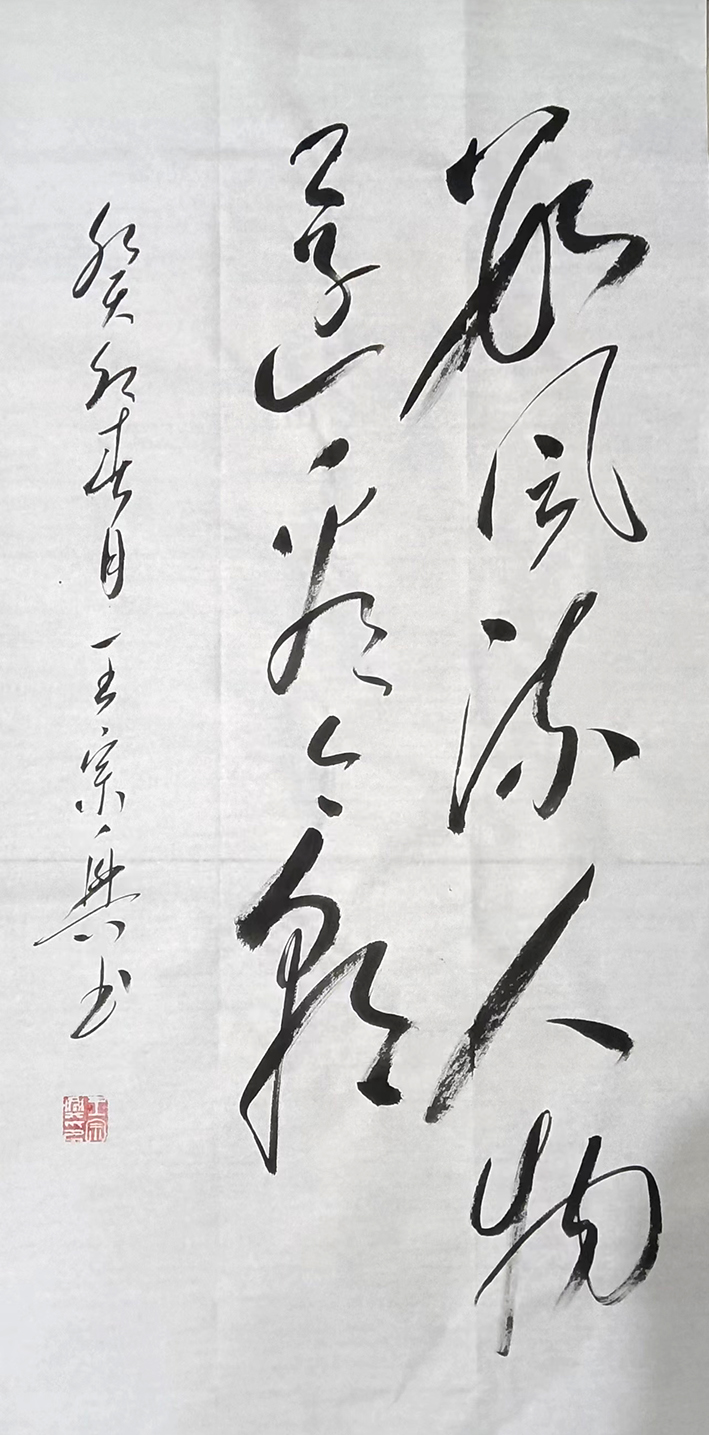 数风流人物
还看今朝
癸卯春月 王宗兴书